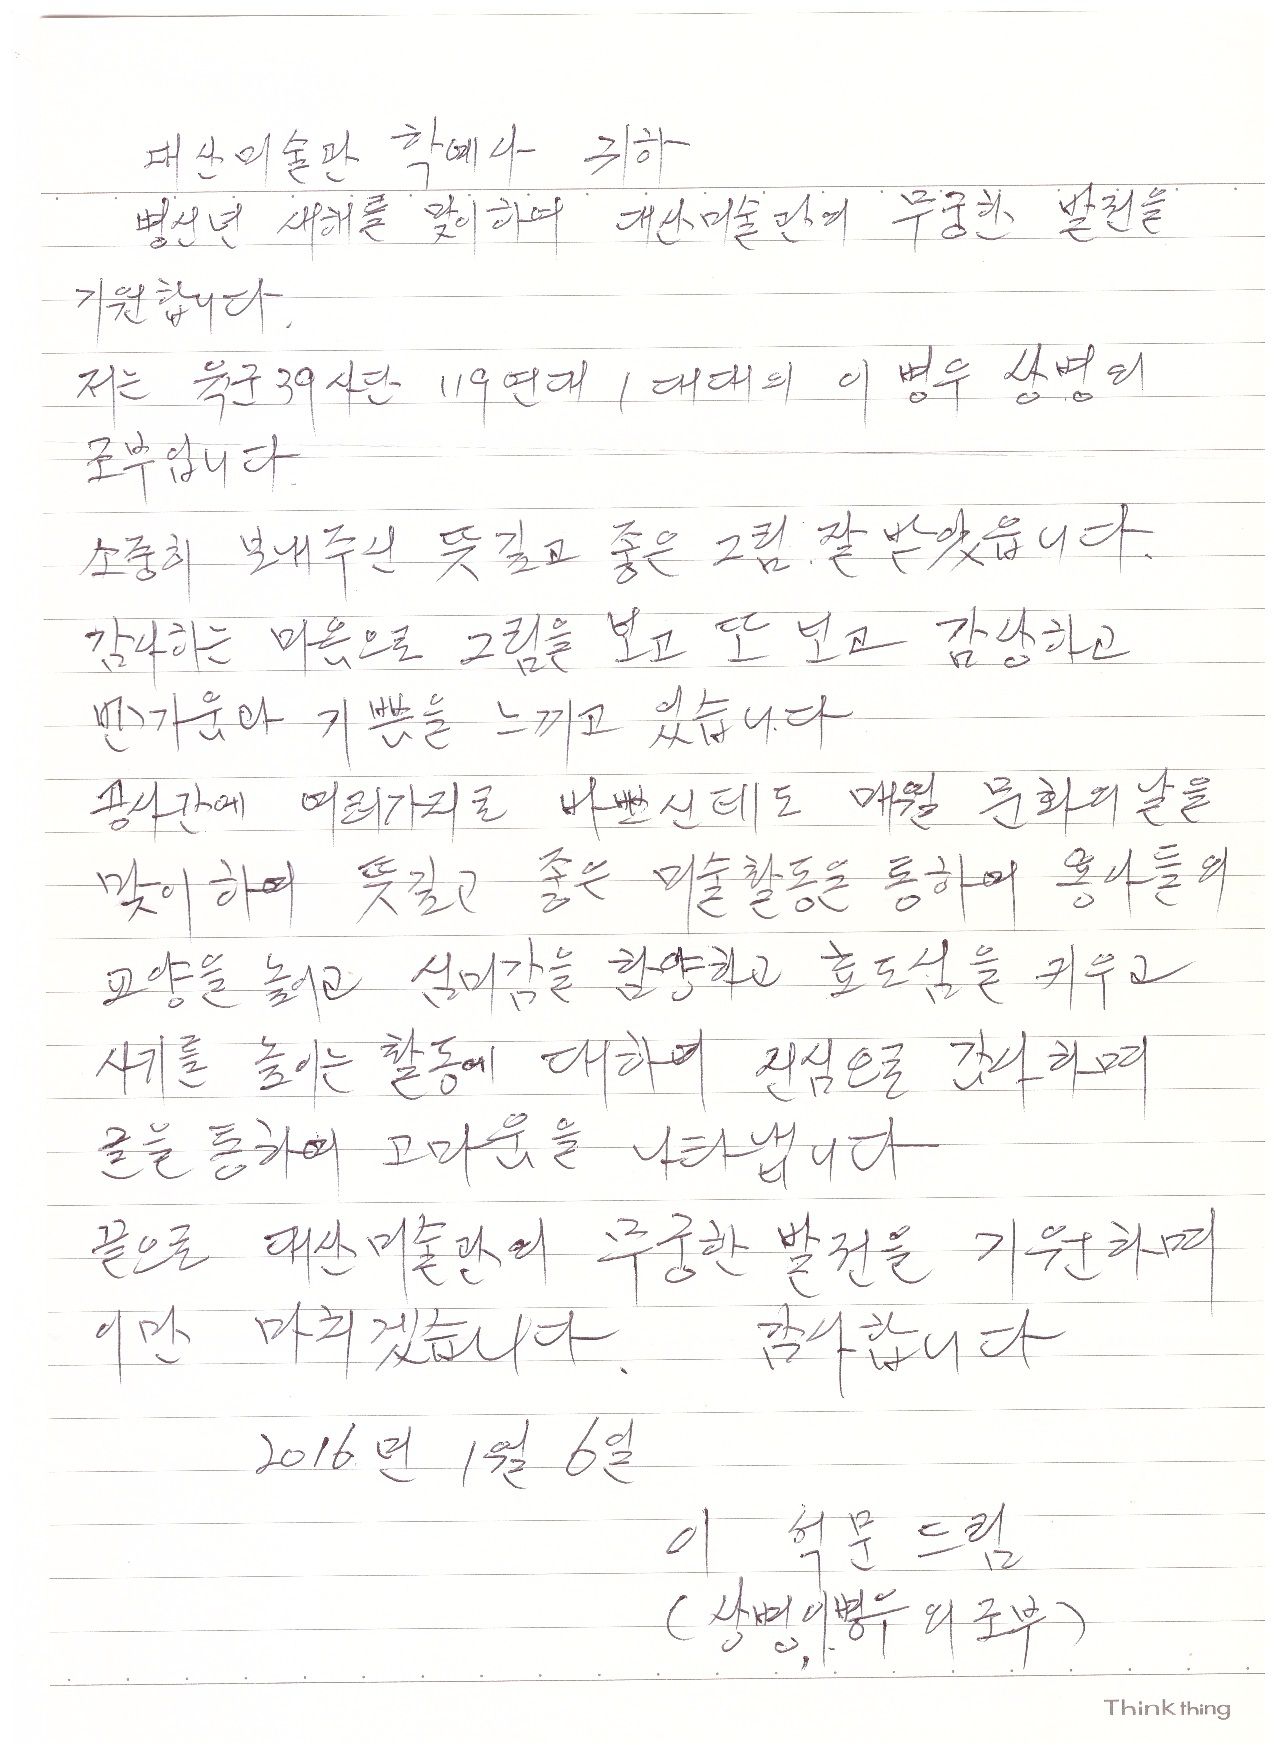 대산미술관 학예사 귀하
병신년 새해를 맞이하여 대산미술관의 무궁한 발전을
기원합니다.
저는 육군39사단 119연대 1대대의 이병우 상병의
조부입니다.
소중히 보내주신 뜻깊고 좋은 그림 잘 받았읍니다.
감사하는 마음으로 그림을 보고 또 보고 감상하고
반가움과 기쁨을 느끼고 있습니다
공사간에 여러가지로 바쁘신데도 매월 문화의날을
맞이하여 뜻깊고 좋은 미술활동을 통하여 용사들의
교양을 높이고 심미감을 함양하고 효도심을 키우고
사기를 높이는 활동에 대하여 진심으로 감사하며
글을 통하여 고마움을 나타냅니다
끝으로 대산미술관의 무궁한 발전을 기원하며
이만 마치겠습니다. 감사합니다
2016년 1월 6일
이 석문 드림
(상병, 이병우의 조부)
Think thing